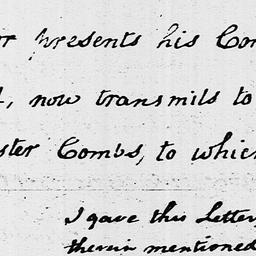 presents his
now transmits to
Combs, to
I gave this Letter
therein mentioned